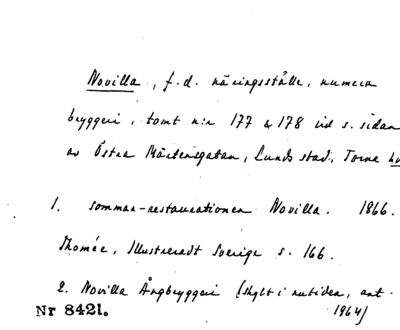 Novilla, f.d. näringsställe, numera
bryggeri, tomt n:r 177 & 178 vid s. sidan
av Östra Mårtensgatan, Lunds stad, Torna
1. sommar-restaurationen Novilla. 1866.
Thomée, Illustreradt Sverige s. 166.
2. Novilla Ångbryggeri (skylt i nutiden, ant.
Nr 8421. 1964)